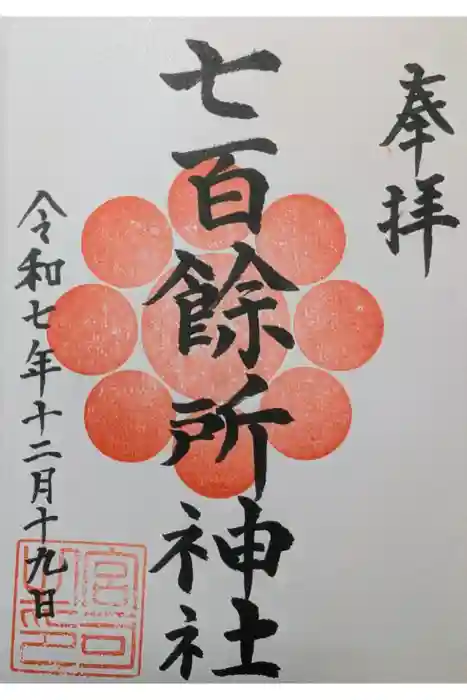 奉拝
七百餘所神社
令和七年十二月十九日